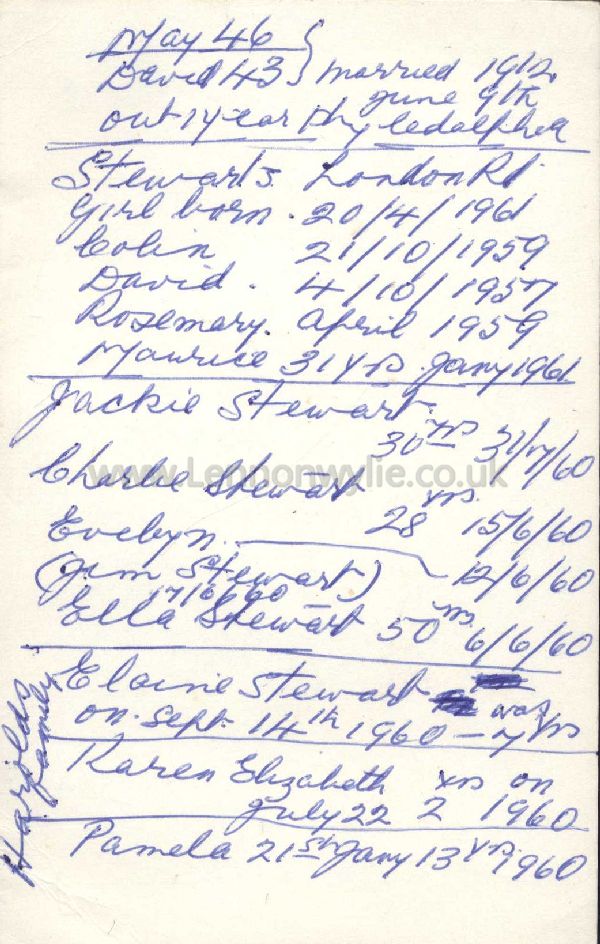 May 46
David 43 } married 1912
June 9th
out 1 year Phyledalphea
Stewarts. London Rd.
Girl born. 20/4/1961
Colin 21/10/1959
David. 4/10/1957
Rosemary. April 1959
Maurice 31 yrs. Jany 1961
Jackie Stewart.
30 yrs 31/7/60
www.Lennonwylie.co.uk
Charlie Stewart
28 yrs. 15/6/60
Evelyn. 12/6/60
(Jim Stewart)
17/6/60
Ella Stewart 50 yrs. 6/6/60
Harolds family
Elaine Stewart was
on. Sept. 14th 1960 – 7 yrs
Karen Elizabeth yrs on
July 22 2 1960
Pamela 21st Jany 13 yrs. 1960